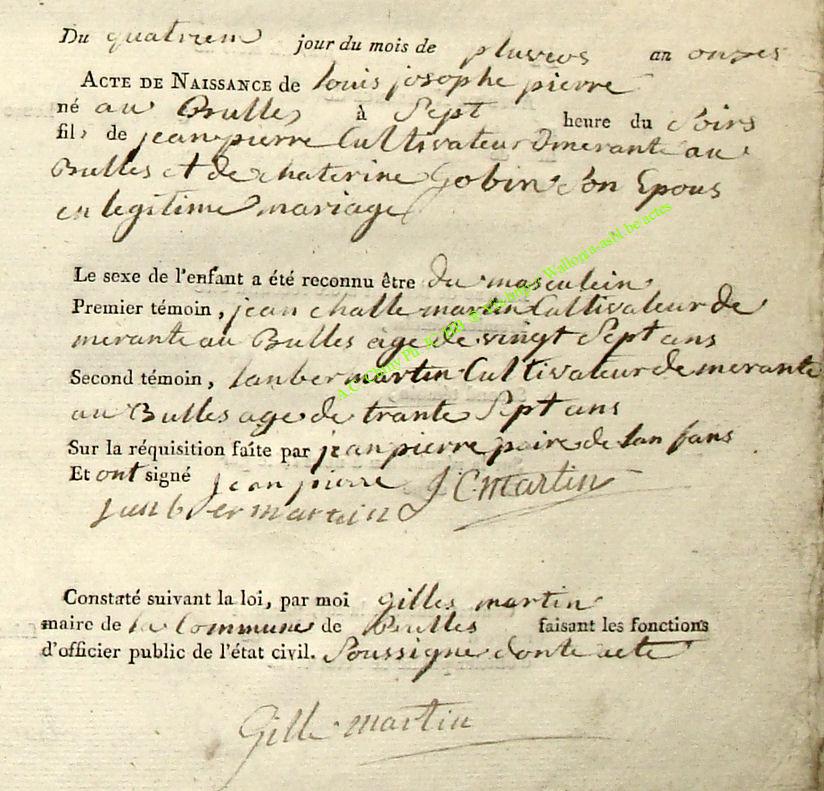 Du quatriem jour du mois de pluvios an onzes
ACTE DE NAISSANCE de louis josophe pierre
né au Bulles à Sept heure du Soirs
fils de jean pierre Cultivateur Dmerante au
Bulles et de chaterine Gobin Son Epous
en legitime mariage
Le sexe de l'enfant a été reconnu être du masculein
Premier témoin, jean challe martin Cultivateur de
merante au Bulles age de vingt Sept ans
Second témoin, lanber martin Cultivateur de merante
au Bulles age de trante Sept ans
Sur la réquisition faite par jean pierre paire de lan fans
Et ont signé jean pierre J C martin
lanber martin
Constaté suivant la loi, par moi gilles martin
maire de la Commune de Bulles faisant les fonctions
d'officier public de l'état civil. Soussigne donte acte
Gille martin